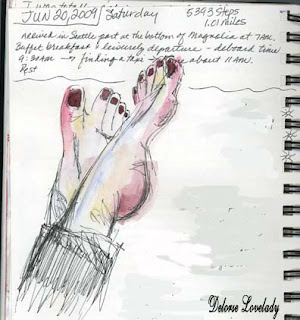 JUN 20, 2009 / Saturday
5393 Steps
1.01 miles
Arrived in Seattle port at the bottom of Magnolia at 7AM.
Buffet breakfast & leisurely departure - deboard time
9:30AM → finding a taxi → about 11AM.
Rest
Delorie Lovelady